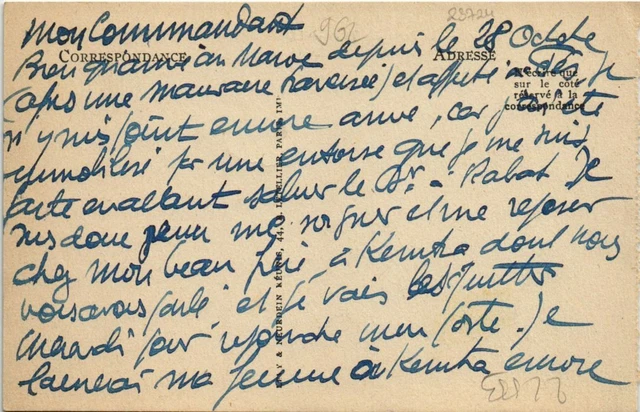 962
23724
Mon Commandant
CORRESPONDANCE
ADRESSE
Bien que arrivé au Maroc depuis le 28 Octobre
N'écrire que
sur le côté
réservé à la
correspondance
(après une mauvaise traversée) et affecté à
je
n'y suis point encore arrivé, car j'ai été
immobilisé par une entorse que je me suis
faite en allant saluer le à Rabat Je
suis donc venu me soigner et me reposer
chez mon beau frère à Kenitra dont nous
vous avons parlé et je vais les quitter
Mardi pour rejoindre mon poste. Je
laisserai ma femme à Kenitra encore